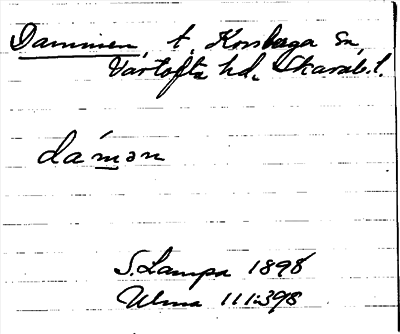 Dammen, t. Korsberga sn,
Vartofta hd, Skarab. l.
da´mən
S. Lampa 1898
Ulma 111:398